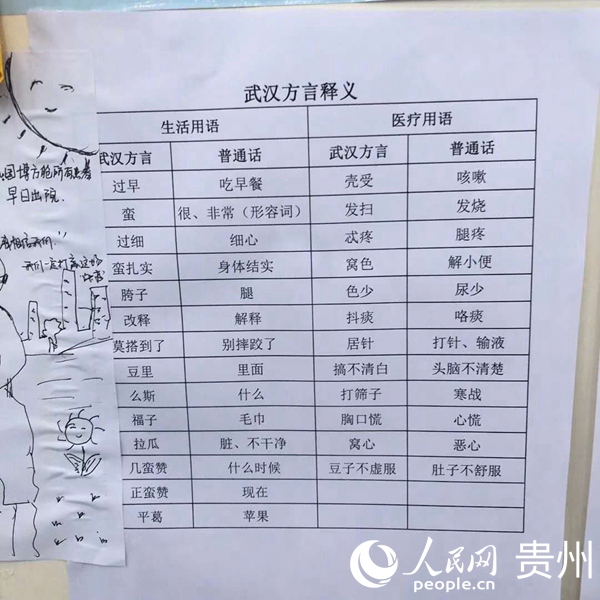 武汉方言释义
生活用语 医疗用语
武汉方言 普通话 武汉方言 普通话
过早 吃早餐 壳受 咳嗽
蛮 很、非常（形容词） 发扫 发烧
过细 细心 忒疼 腿疼
蛮扎实 身体结实 窝色 解小便
胯子 腿 色少 尿少
改释 解释 抖痰 咯痰
莫搭到了 别摔跤了 居针 打针、输液
豆里 里面 搞不清白 头脑不清楚
么斯 什么 打筛子 寒战
福子 毛巾 胸口慌 心慌
拉瓜 脏、不干净 窝心 恶心
几蛮赞 什么时候 豆子不虚服 肚子不舒服
正蛮赞 现在
平葛 苹果
国博方舱所有患者
早日出院.
相信我们!
我们一定打赢这场
人民网 贵州
people.cn